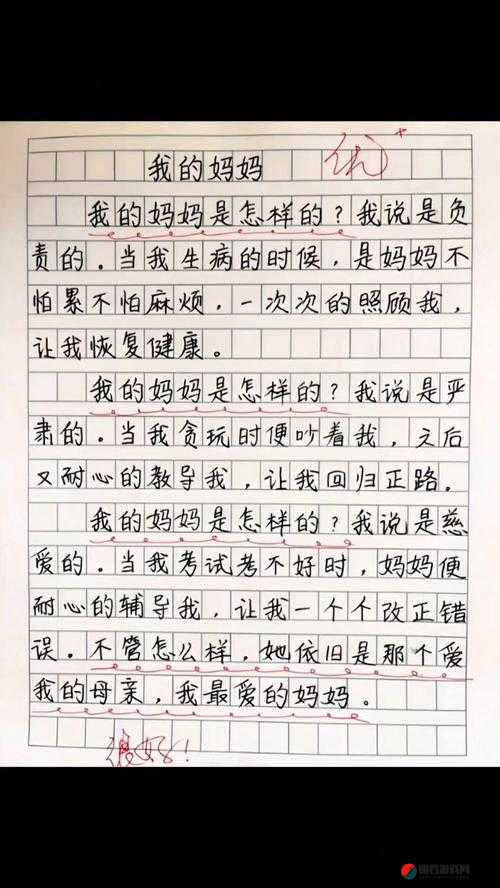 我的妈妈
优+
我的妈妈是怎样的?我说是负
责的.当我生病的时候,是妈妈不
怕累不怕麻烦,一次次的照顾我,
让我恢复健康。
我的妈妈是怎样的?我说是严
肃的.当我贪玩时便吵着我,之后
又耐心的教导我,让我回归正路.
我的妈妈是怎样的?我说是慈
爱的.当我考试考不好时,妈妈便
耐心的辅导我,让我一个个改正错
误.不管怎么样,她依旧是那个爱
我的母亲,我最爱的妈妈。
很好!